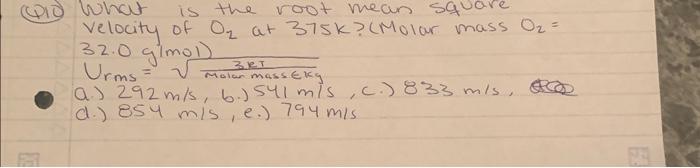 Q10 What is the root mean square
velocity of O₂ at 375K? (Molar mass O₂ =
32.0 g/mol)
Urms = √ 3RT / Molar mass ∈ Kg
a.) 292 m/s, b.) 541 m/s, c.) 833 m/s,
d.) 854 m/s, e.) 794 m/s